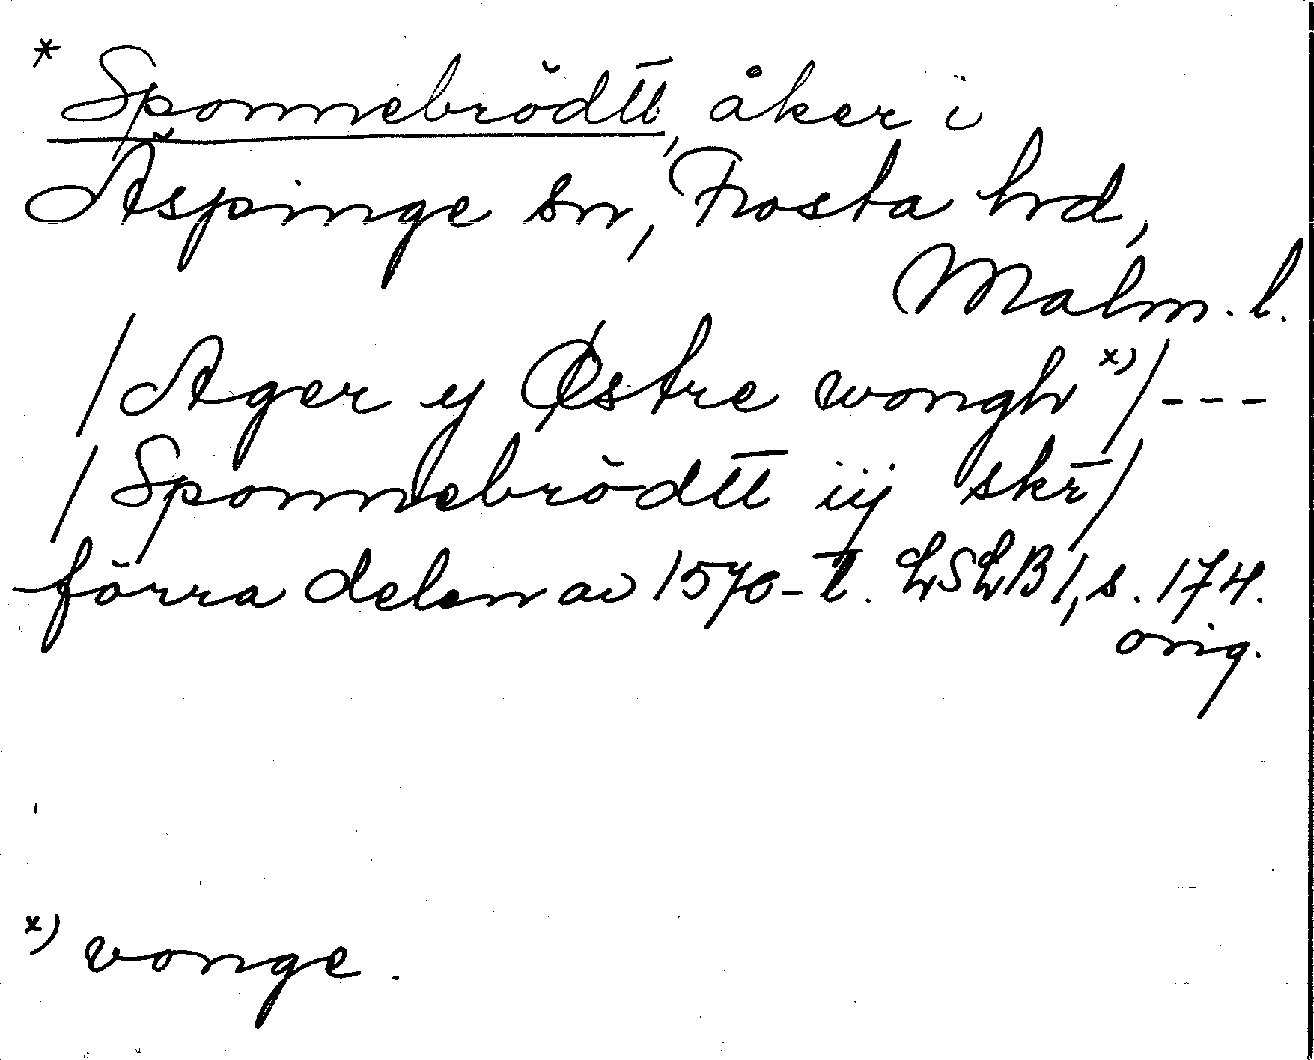 * Sponnebrödtt, åker i
Äspinge sn, Frosta hd,
Malm. l.
/Ager y Østre wongh x)/---
/Sponnebrödtt iij skr/
förra delen av 1570-t. LSLB 1, s. 174.
orig.
x) vonge.